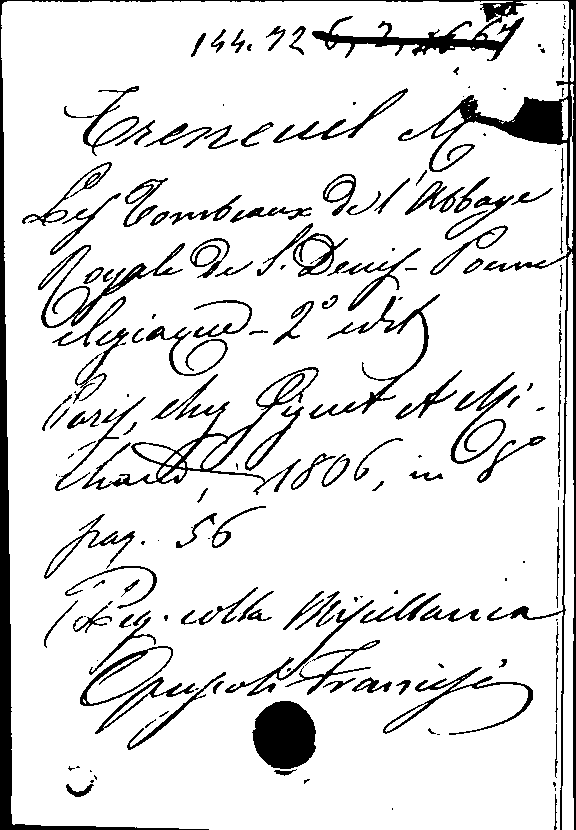 144.72 6, 2, 667
Treneuil M.
Les Tombeaux de l'Abbaye
Royale de S. Denis - Poeme
elegiaque - 2º edit
Paris, chez Giguet et Mi-
chaud, 1806, in 8º
pag. 56
(Leg. colla Miscellanea
Opuscoli Francesi